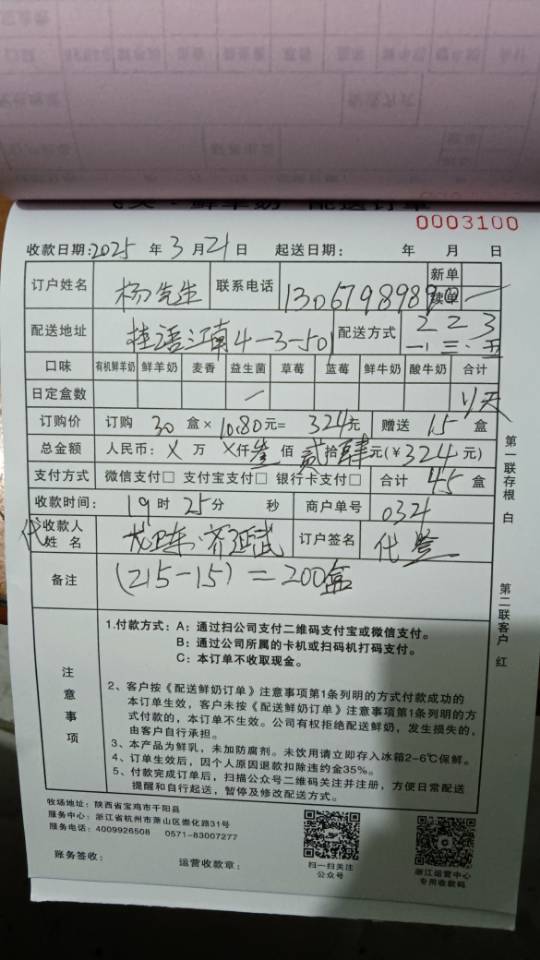 鲜羊奶 配送订单
0003100
收款日期:2025 年 3 月 21 日 起送日期: 年 月 日
订户姓名 杨先生 联系电话 新单
续单 一
配送地址 桂语江南4-3-501 配送方式 2 2 3
一、三、五
口味 有机鲜羊奶 鲜羊奶 麦香 益生菌 草莓 蓝莓 鲜牛奶 酸牛奶 合计
日定盒数 一
订购价 订购 30 盒 × 10.80 元= 324元 赠送 15 盒
总金额 人民币: X 万 X 仟 叁 佰 贰 拾 肆 元(¥ 324 元)
支付方式 微信支付□ 支付宝支付□ 银行卡支付□ 合计 45 盒
收款时间: 19 时 25 分 秒 商户单号 034
代 收款人
姓 名 订户签名 代签
备注 (215-15)=200盒
第一联存根 白
第二联客户 红
注意事项
1.付款方式: A: 通过扫公司支付二维码支付宝或微信支付。
B: 通过公司所属的卡机或扫码机打码支付。
C: 本订单不收取现金。
2、客户按《配送鲜奶订单》注意事项第1条列明的方式付款成功的
本订单生效，客户未按《配送鲜奶订单》注意事项第1条列明的方
式付款的，本订单不生效。公司有权拒绝配送鲜奶，发生损失的，
由客户自行承担。
3、本产品为鲜乳，未加防腐剂。未饮用请立即存入冰箱2-6℃保鲜。
4、订单生效后，因个人原因退款扣除违约金35%。
5、付款完成订单后，扫描公众号二维码关注并注册，方便日常配送
提醒和自行起送，暂停及修改配送方式。
牧场地址: 陕西省宝鸡市千阳县
服务中心: 浙江省杭州市萧山区崇化路31号
服务电话: 4009926508 0571-83007277
账务签收: 运营收款章:
扫一扫关注
公众号
浙江运营中心
专用收款码